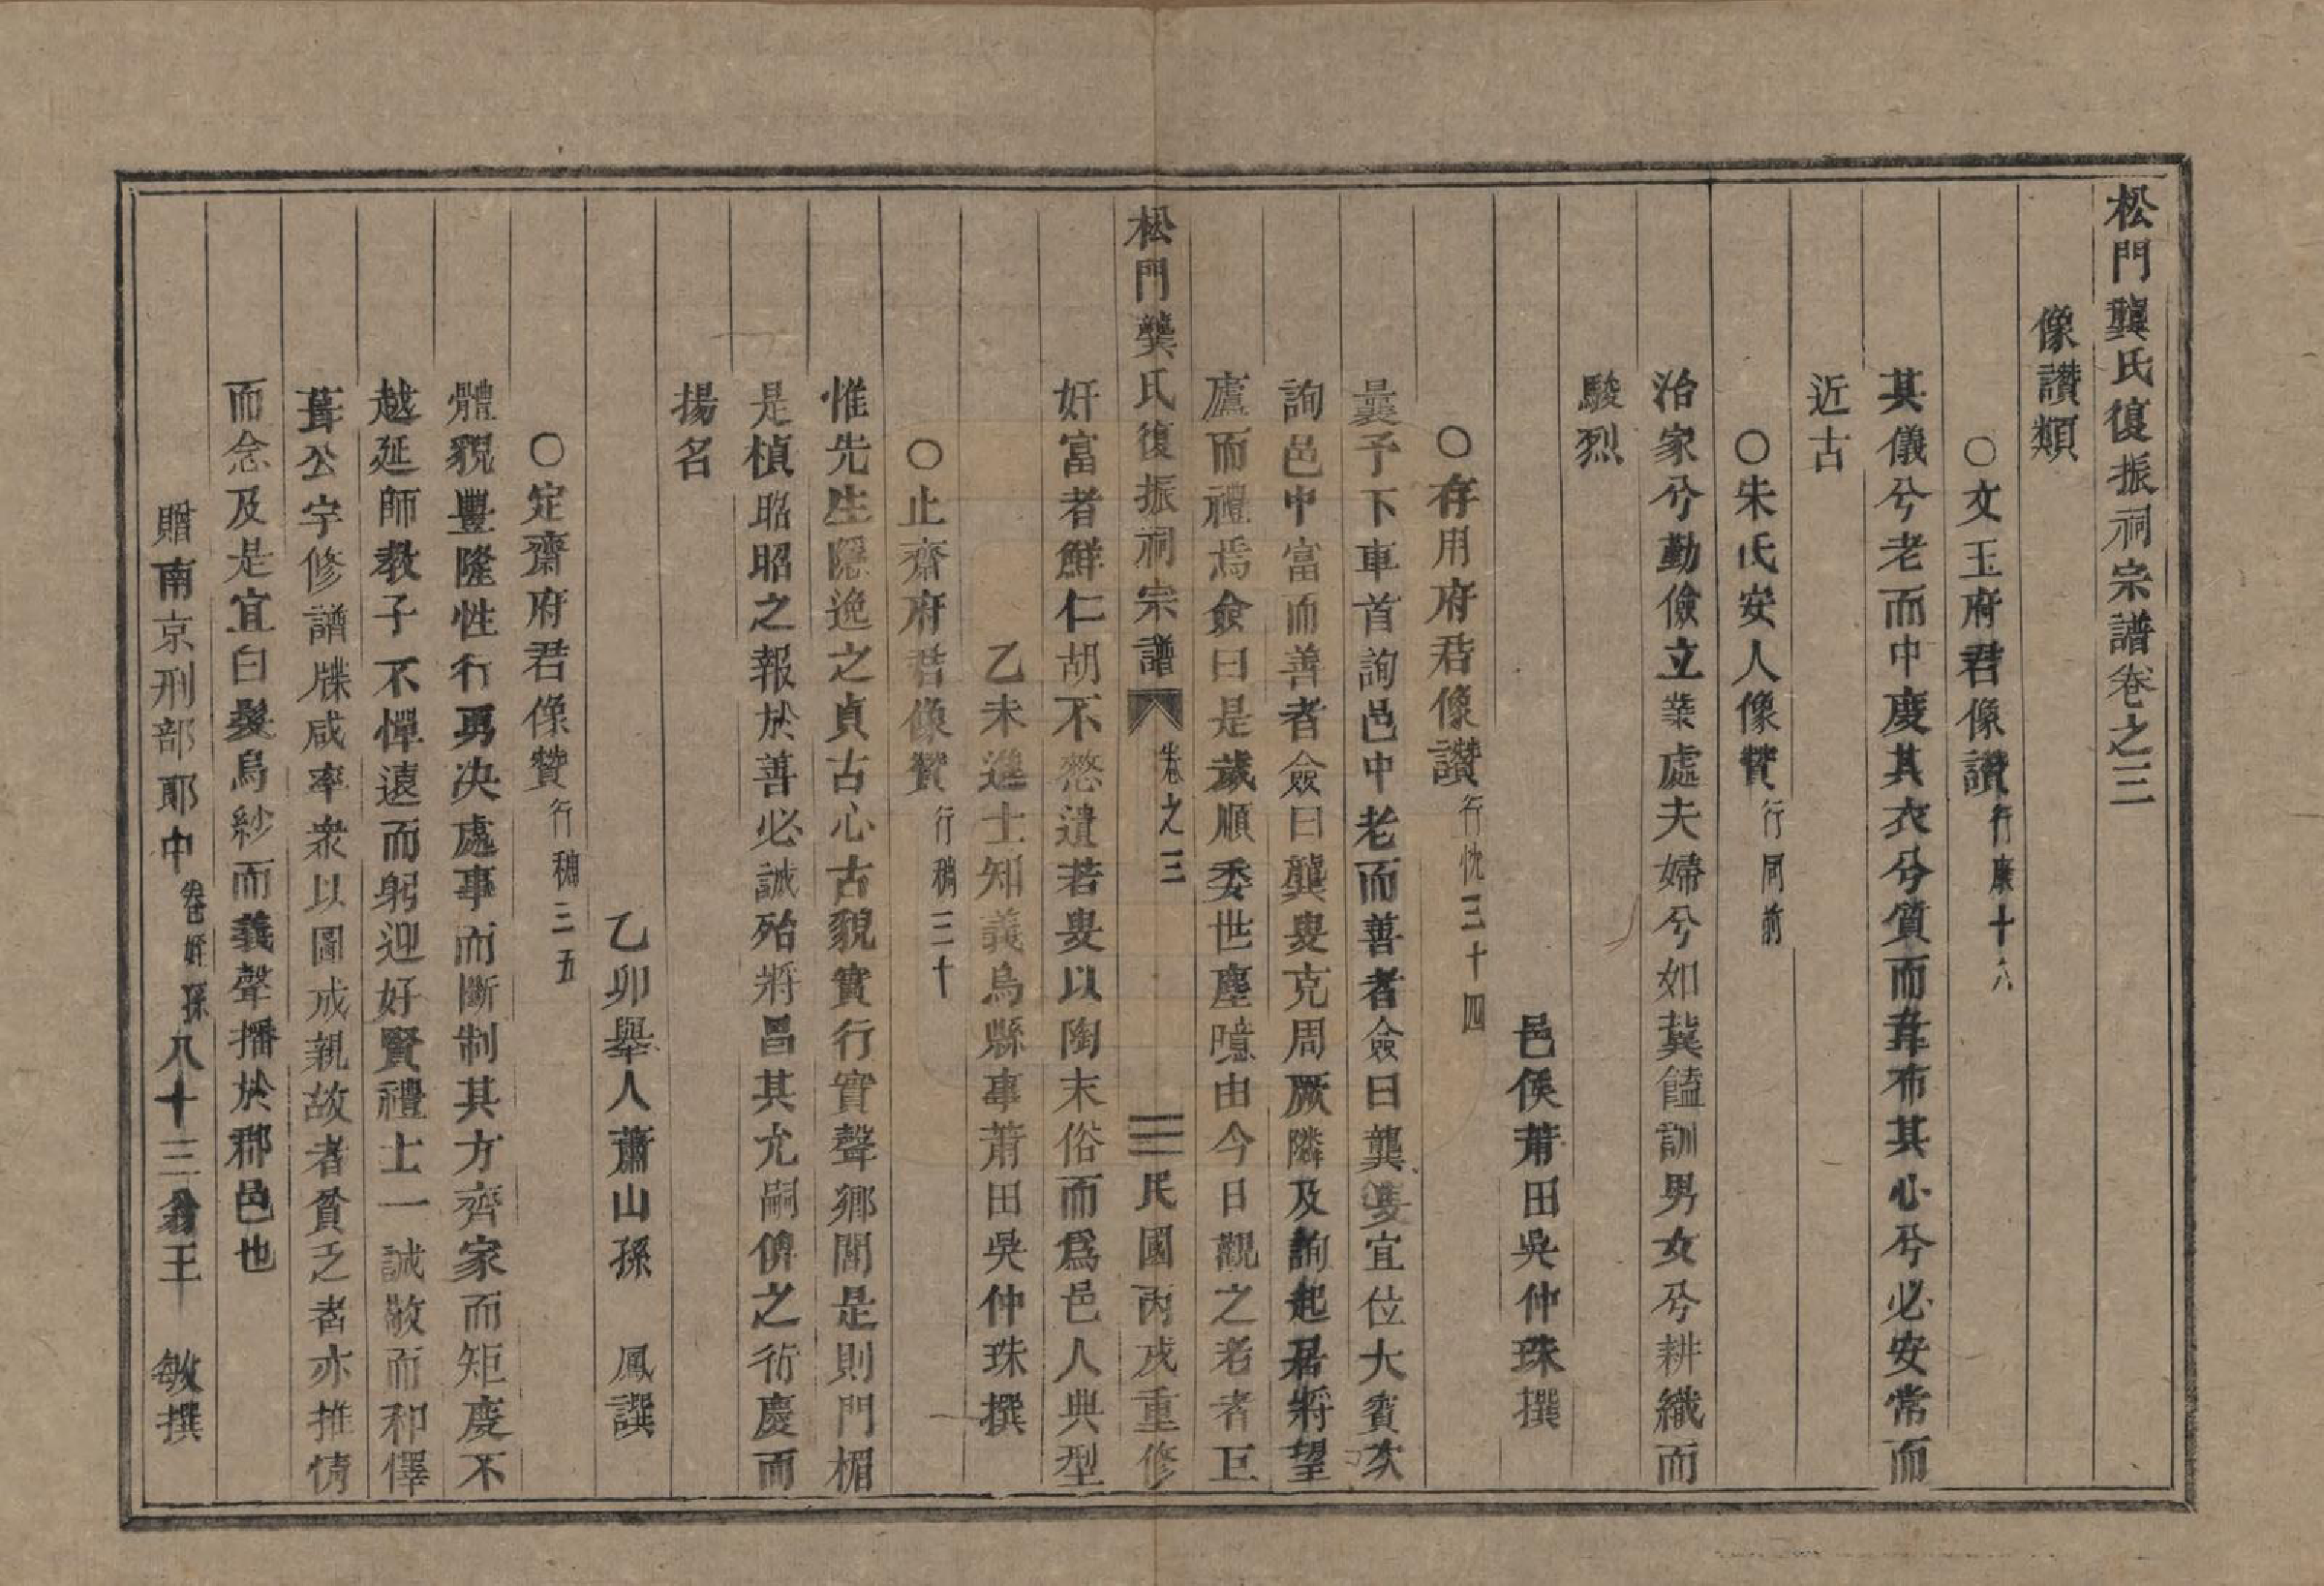 松門龔氏復振祠宗譜卷之三
像讚類
○文玉府君像讚行康十八
其儀兮老而中慶其衣兮質而韋布其心兮必安常而
近古
○朱氏安人像贊行同前
治家兮勤儉立業處夫婦兮如冀饁訓男女兮耕織而
駿烈
邑侯莆田吳仲珠撰
○存用府君像讚行忱三十四
曩予下車首詢邑中老而善者僉曰龔叟宜位大賓次
詢邑中富而善者僉曰龔叟克周厥隣及詢起居將望
廬而禮焉僉曰是歲順委世塵噫由今日觀之老者巨
松門龔氏復振祠宗譜 卷之三 三 民國丙戌重修
奸富者鮮仁胡不憗遺若叟以陶末俗而爲邑人典型
乙未進士知義烏縣事莆田吳仲珠撰
○止齋府君像贊行穪三十
惟先生隱逸之貞古心古貌實行實聲鄉閭是則門楣
是楨昭昭之報於善必誠殆將昌其尤嗣俾之衍慶而
揚名
乙卯舉人蕭山孫 鳳譔
○定齋府君像贊行穪三五
體貌豐隆性行勇决處事而斷制其方齊家而矩度不
越延師教子不憚遠而躬迎好賢禮士一誠敬而和懌
葺公宇修譜牒咸率衆以圖成親故者貧乏者亦推情
而念及是宜白髮烏紗而義聲播於郡邑也
贈南京刑部郎中 孫八十三翁王 敏撰